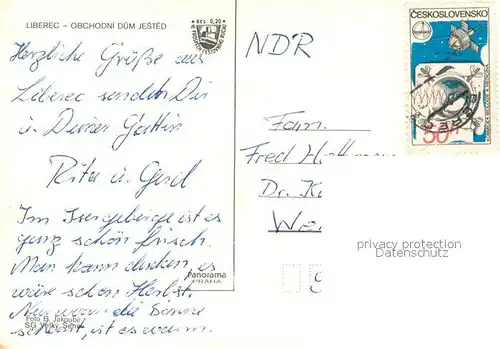 LIBEREC – OBCHODNÍ DŮM JEŠTĚD
Kčs 0,20
Herzliche Grüße aus
Liberec senden Dir
u. Deiner Gattin
Rita u. Gerd
Im Isergebirge ist es
ganz schön frisch.
Man kann denken es
wäre schon Herbst.
Nur wenn die Sonne
scheint, ist es warm.
Panorama
PRAHA
Foto B. Jakoubě
SG Velký Šenov
ČESKOSLOVENSKO
50h
NDR
Fam.
Fred
Dr.
privacy protection
Datenschutz